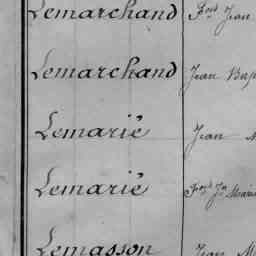 Lemarchand Fçois Jean
Lemarchand Jean Bap
Lemarié Jean
Lemarié Jn Marie
Lemasson Jean M